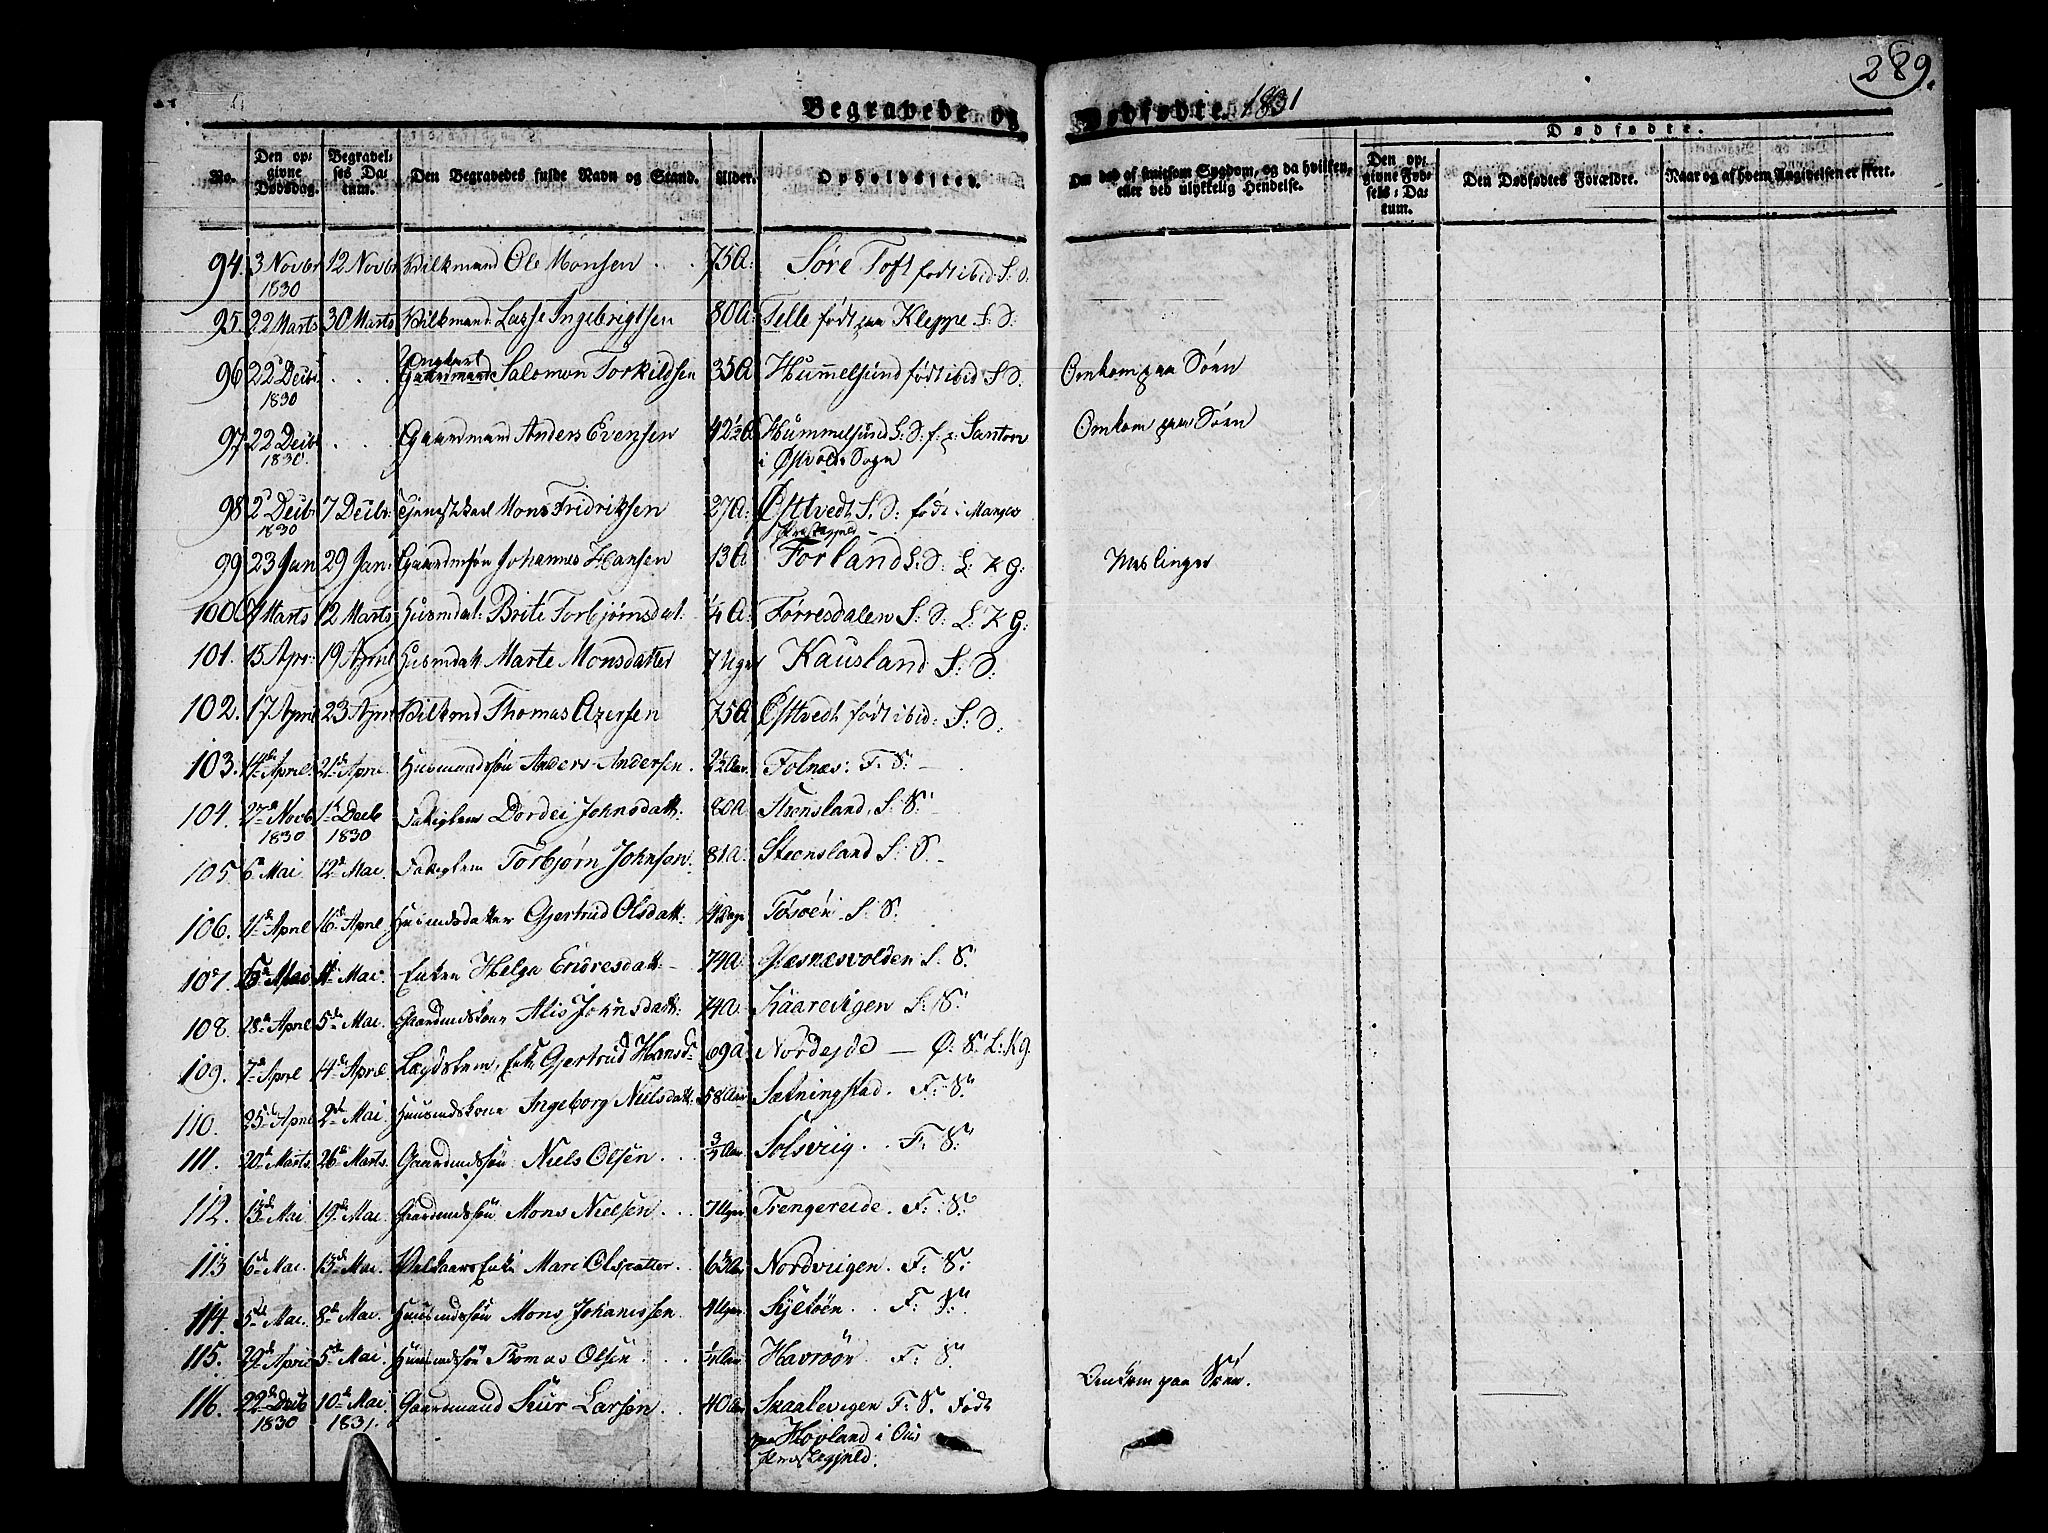 289.
Begravede og Dødfødte. 1831
No.
Den opgivne Dødsdag.
Begravelses Datum.
Den Begravedes fulde Navn og Stand.
Alder.
Opholdssted.
Om død af smitsom Sygdom, og da hvilken, eller ved ulykkelig Hendelse.
Dødfødte.
Den opgivne Fødsels-Datum.
Den Dødfødtes Forældre.
Naar og af hvem Angivelsen er skeet.
94. 3 Novbr 1830 12 Novbr Vilkmand Ole Monsen 75 A: Søre Toft født ibid: S: S:
95. 22 Marts 30 Marts Vilkmand Lasse Ingebrigtsen 80 A: Telle født paa Kleppe S: S:
96 22 Decbr 1830 Ungkarl Gaardmand Salomon Torkildsen 35 A Hummelsund født ibid S S: Omkom paa Søen
97. 22 Decbr 1830 Gaardmand Anders Evensen 42½ A Hummelsund S: S: f: p: Santon
i Østvold Sogn Omkom paa Søen
98 2 Decbr 1830 7 Decbr: Tjenestekarl Mons Fridriksen 27 A: Østtvedt S. S: født i Manger
Præstegjeld
99 23 Jan 29 Jan: Gaardmsøn Johannes Hansen 13 A Forland S: S: L: K G: Meslinger
100 7 Marts 12 Marts Huusmdat: Brite Torbjørnsdat: ¼ A: Førresdalen S: S: L: K G:
101. 15 Apr: 19 April Huusmdatt Marte Monsdatter 7 Uger Kausland S: S:
102. 17 April 23 Apr Vilkmd Thomas Azersen 75 A Østtvedt født ibid: S: S:
103. 14de April 21de April Huusmandssøn Anders Andersen. 2½ Aar. Folnæs: F: S:
104. 27de Novb 1830 1ste Decb 1830 Fattiglem Dordei Johnsdatt: 80 A Steensland, S: S:
105. 6te Mai 12te Mai. Fattiglem Torbjørn Johnsøn. 81 A: Steensland S: S.
106. 11de April 16de April Huusmdsdatter Gjertrud Olsdatt: Tøsøen S. S.
107. Mai Mai. Enken Helga Endresdatt 74 A: Glesnæsvolden S. S:
108. 28de April 5de Mai. Gaardmdskone Alis Johnsdatt: 74 A. Kaarevigen S: S:
109. 7de April 14de April Lægdslem, Enke Gjertrud Hansd: 69 A: Nordejde — Ø: S: L: Kg.
110. 25de April 2den Mai Huusmdskone Ingeborg Nielsdatt: 58 Aar Sætningstad. F: S:
111. 20de Marts 26de Marts. Gaardmdssøn Niels Olsen. ¾ Aar. Solsviig. F: S:
112. 13de Mai 19de Mai. Gaardmdssøn Mons Nielsen. 7 Uger Trengereide. F: S:
113 6te Mai 13de Mai. Enke Mari Olsdatter. 63 Aar Nordviigen. F: S:
114. 5te Mai. 8de Mai. Huusmdssøn Mons Johannessen. 4 Uger Syltøen. F: S:
115. 29de April 5te Mai Huusmdssøn Thomas Olsen. Aar. Havrøen. F. S:
116. 22de Decb 1830 10de Mai 1831. Gaardmand Siur Larsen 40 Aar Skaalevigen F: S. Født
paa Hovland i Ous
Præstegjeld. Omkom paa Søen.